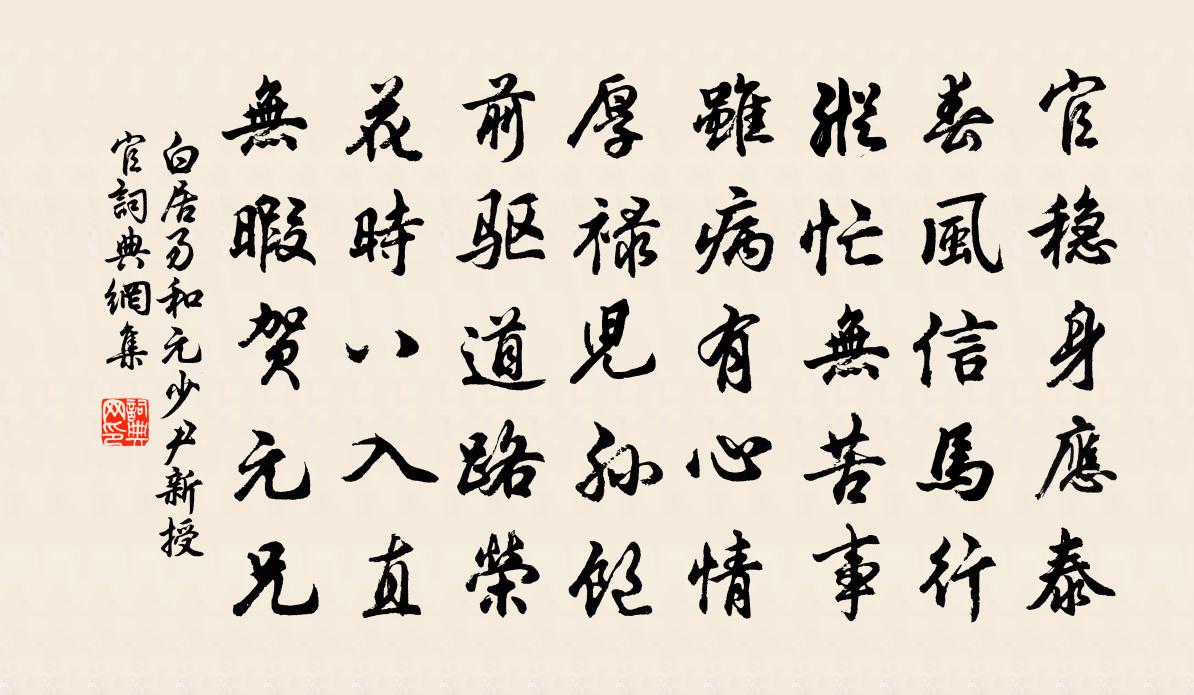 官穩身應泰
春風信馬行
縱忙無苦事
雖病有心情
厚禄兒孫飽
前驱道路榮
花時八入直
無暇贺元兄
白居易和元少尹新授
官詞典網集
詞典
网印